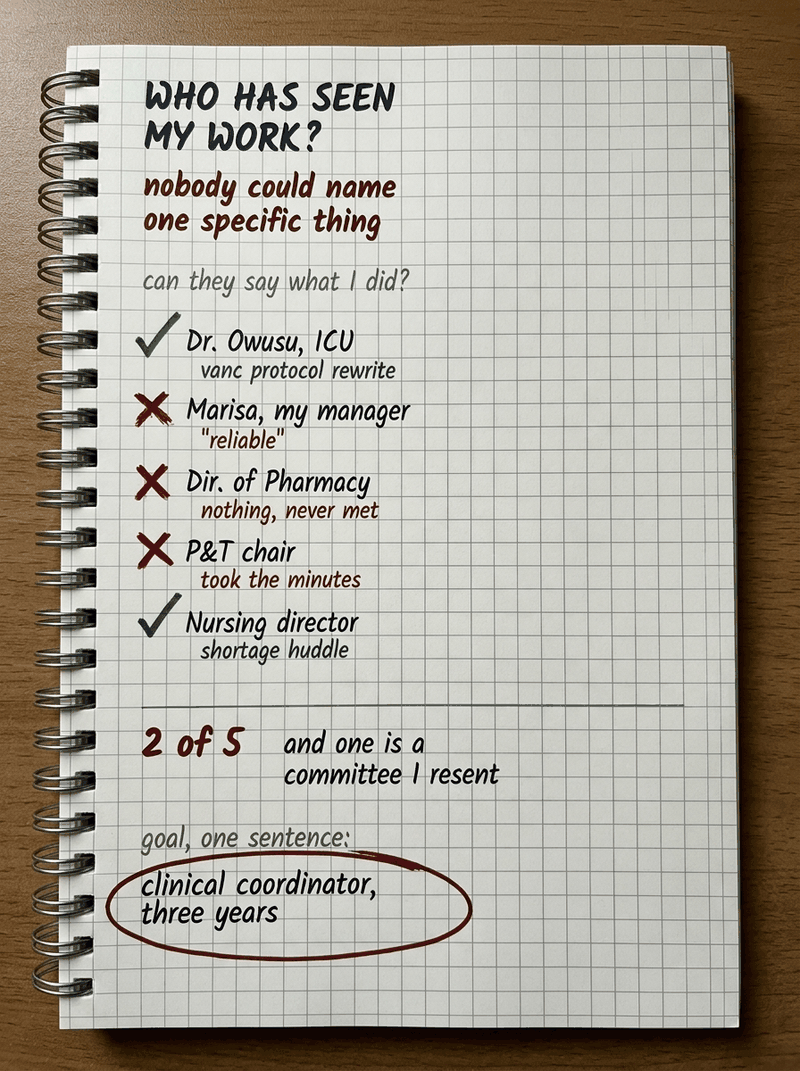 WHO HAS SEEN
MY WORK?
nobody could name
one specific thing
can they say what I did?
Dr. Owusu, ICU
vanc protocol rewrite
Marisa, my manager
"reliable"
Dir. of Pharmacy
nothing, never met
P&T chair
took the minutes
Nursing director
shortage huddle
2 of 5 and one is a
committee I resent
goal, one sentence:
clinical coordinator,
three years